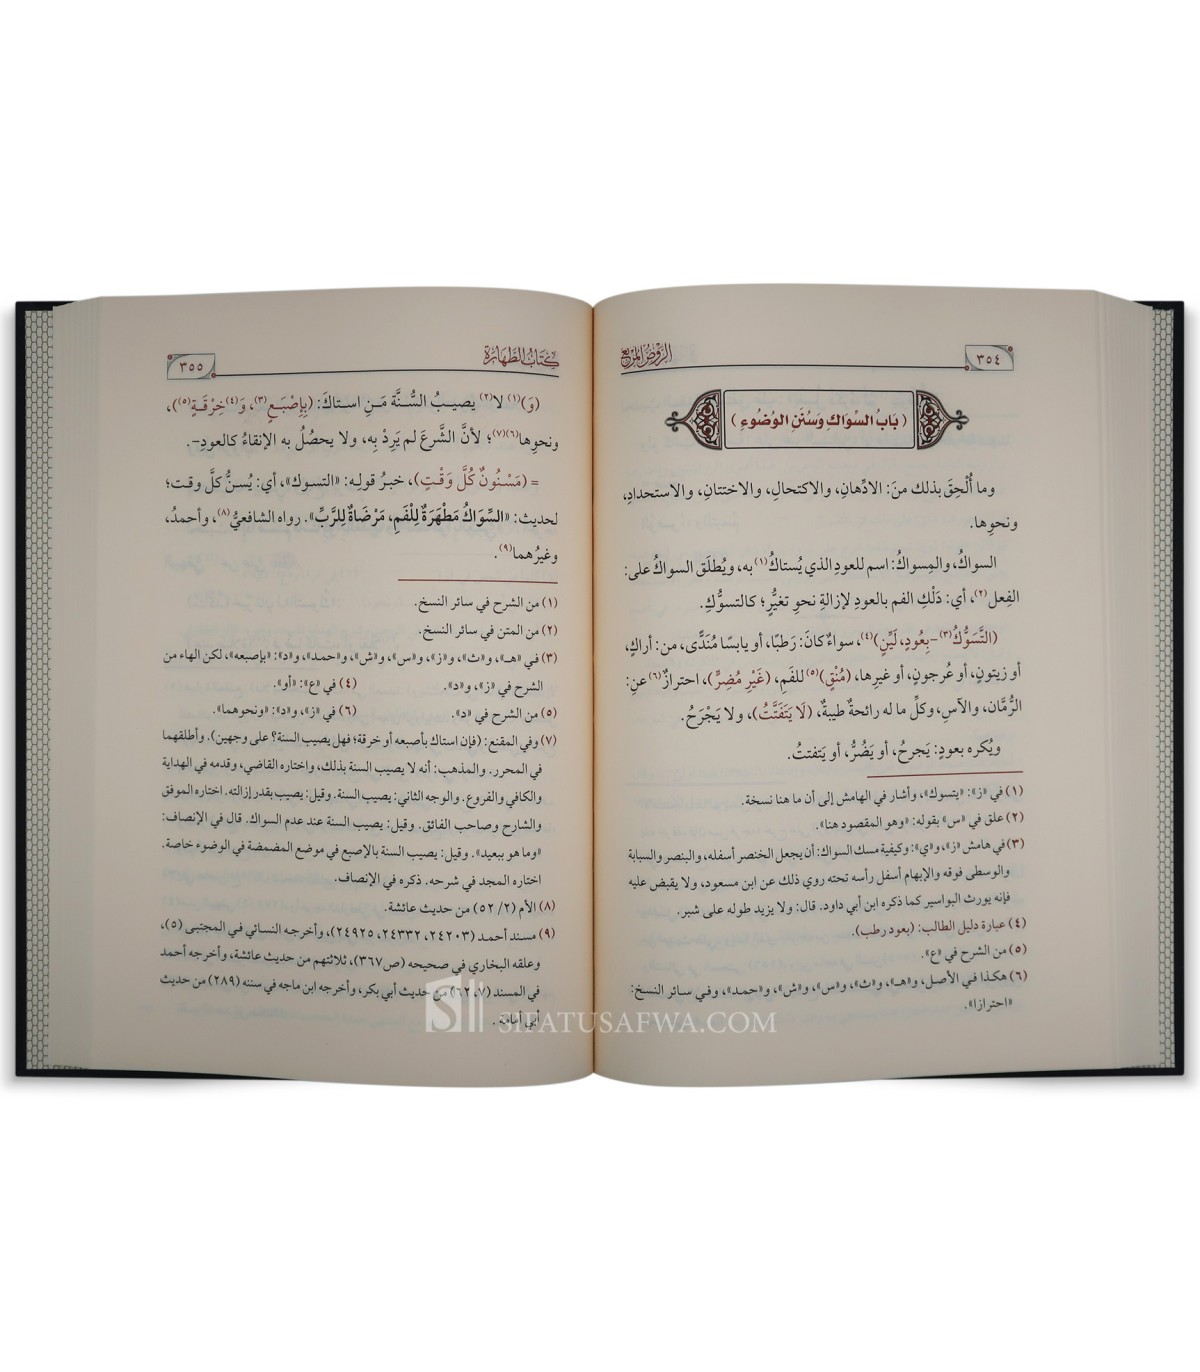 ٣٥٤
الرَّوضُ المُربِع
﴿ بَابُ السِّوَاكِ وَسُنَنِ الوُضُوءِ ﴾
وما أُلْحِقَ بذلك منَ: الادِّهانِ، والاكتحالِ، والاختتانِ، والاستحدادِ،
ونحوِها.
السواكُ، والمِسواكُ: اسم للعودِ الذي يُستاكُ(١) به، ويُطلَق السواكُ على:
الفِعل(٢)، أي: دَلْكِ الفم بالعودِ لإزالةِ نحوِ تغيُّرٍ؛ كالتسوُّكِ.
(التَّسَوُّكُ(٣) -بِعُودٍ، لَيِّنٍ)(٤)، سواءٌ كانَ: رَطبًا، أو يابسًا مُنَدًّى، من: أراكٍ،
أو زيتونٍ، أو عُرجونٍ، أو غيرِها، (مُنْقٍ)(٥) للفَمِ، (غَيْرِ مُضِرٍّ)، احترازٌ(٦) عنِ:
الرُّمَّان، والآسِ، وكلِّ ما له رائحةٌ طيبةٌ، (لَا يَتَفَتَّتُ)، ولا يَجْرَحُ.
ويُكره بعودٍ: يَجرحُ، أو يَضُرُّ، أو يَتفتتُ.
(١) في «ز»: «يتسوك»، وأشار في الهامش إلى أن ما هنا نسخة.
(٢) علق في «س» بقوله: «وهو المقصود هنا».
(٣) في هامش «ز»، و«ي»: وكيفية مسك السواك: أن يجعل الخنصر أسفله، والبنصر والسبابة
والوسطى فوقه والإبهام أسفل رأسه تحته روي ذلك عن ابن مسعود، ولا يقبض عليه
فإنه يورث البواسير كما ذكره ابن أبي داود. قال: ولا يزيد طوله على شبر.
(٤) عبارة دليل الطالب: (بعود رطب).
(٥) من الشرح في «ع».
(٦) هكذا في الأصل، و«هـ»، و«ث»، و«س»، و«ش»، و«حمد»، وفي سائر النسخ:
«احترازا».
كِتَابُ الطَّهَارَةِ
٣٥٥
(وَ)(١) لا(٢) يصيبُ السُّنَّة مَنِ استاكَ: (بِإِصْبَعٍ(٣)، وَ(٤)خِرْقَةٍ(٥))،
ونحوِها(٦)(٧)؛ لأنَّ الشَّرعَ لم يَرِدْ بِه، ولا يحصُلُ به الإنقاءُ كالعودِ-.
= (مَسْنُونٌ كُلَّ وَقْتٍ)، خبرُ قولِه: «التسوك»، أي: يُسنُّ كلَّ وقت؛
لحديث: «السِّوَاكُ مَطْهَرَةٌ لِلْفَمِ، مَرْضَاةٌ لِلرَّبِّ». رواه الشافعيُّ(٨)، وأحمدُ،
وغيرُهما(٩).
(١) من الشرح في سائر النسخ.
(٢) من المتن في سائر النسخ.
(٣) في «هـ»، و«ث»، و«ز»، و«س»، و«ش»، و«حمد»، و«د»: «بإصبعه»، لكن الهاء من
الشرح في «ز»، و«د». (٤) في «ع»: «أو».
(٥) من الشرح في «د». (٦) في «ز»، و«د»: «ونحوهما».
(٧) وفي المقنع: (فإن استاك بأصبعه أو خرقة؛ فهل يصيب السنة؟ على وجهين). وأطلقهما
في المحرر. والمذهب: أنه لا يصيب السنة بذلك، واختاره القاضي، وقدمه في الهداية
والكافي والفروع. والوجه الثاني: يصيب السنة. وقيل: يصيب بقدر إزالته. اختاره الموفق
والشارح وصاحب الفائق. وقيل: يصيب السنة عند عدم السواك. قال في الإنصاف:
«وما هو ببعيد». وقيل: يصيب السنة بالإصبع في موضع المضمضة في الوضوء خاصة.
اختاره المجد في شرحه. ذكره في الإنصاف.
(٨) الأم (٢/ ٥٢) من حديث عائشة.
(٩) مسند أحمد (٢٤٢٠٣، ٢٤٣٣٢، ٢٤٩٢٥)، وأخرجه النسائي في المجتبى (٥)،
وعلقه البخاري في صحيحه (ص٣٦٧)، ثلاثتهم من حديث عائشة، وأخرجه أحمد
في المسند (٧، ٦٢) من حديث أبي بكر، وأخرجه ابن ماجه في سننه (٢٨٩) من حديث
أبي أمامة.
SIFATUSAFWA.COM